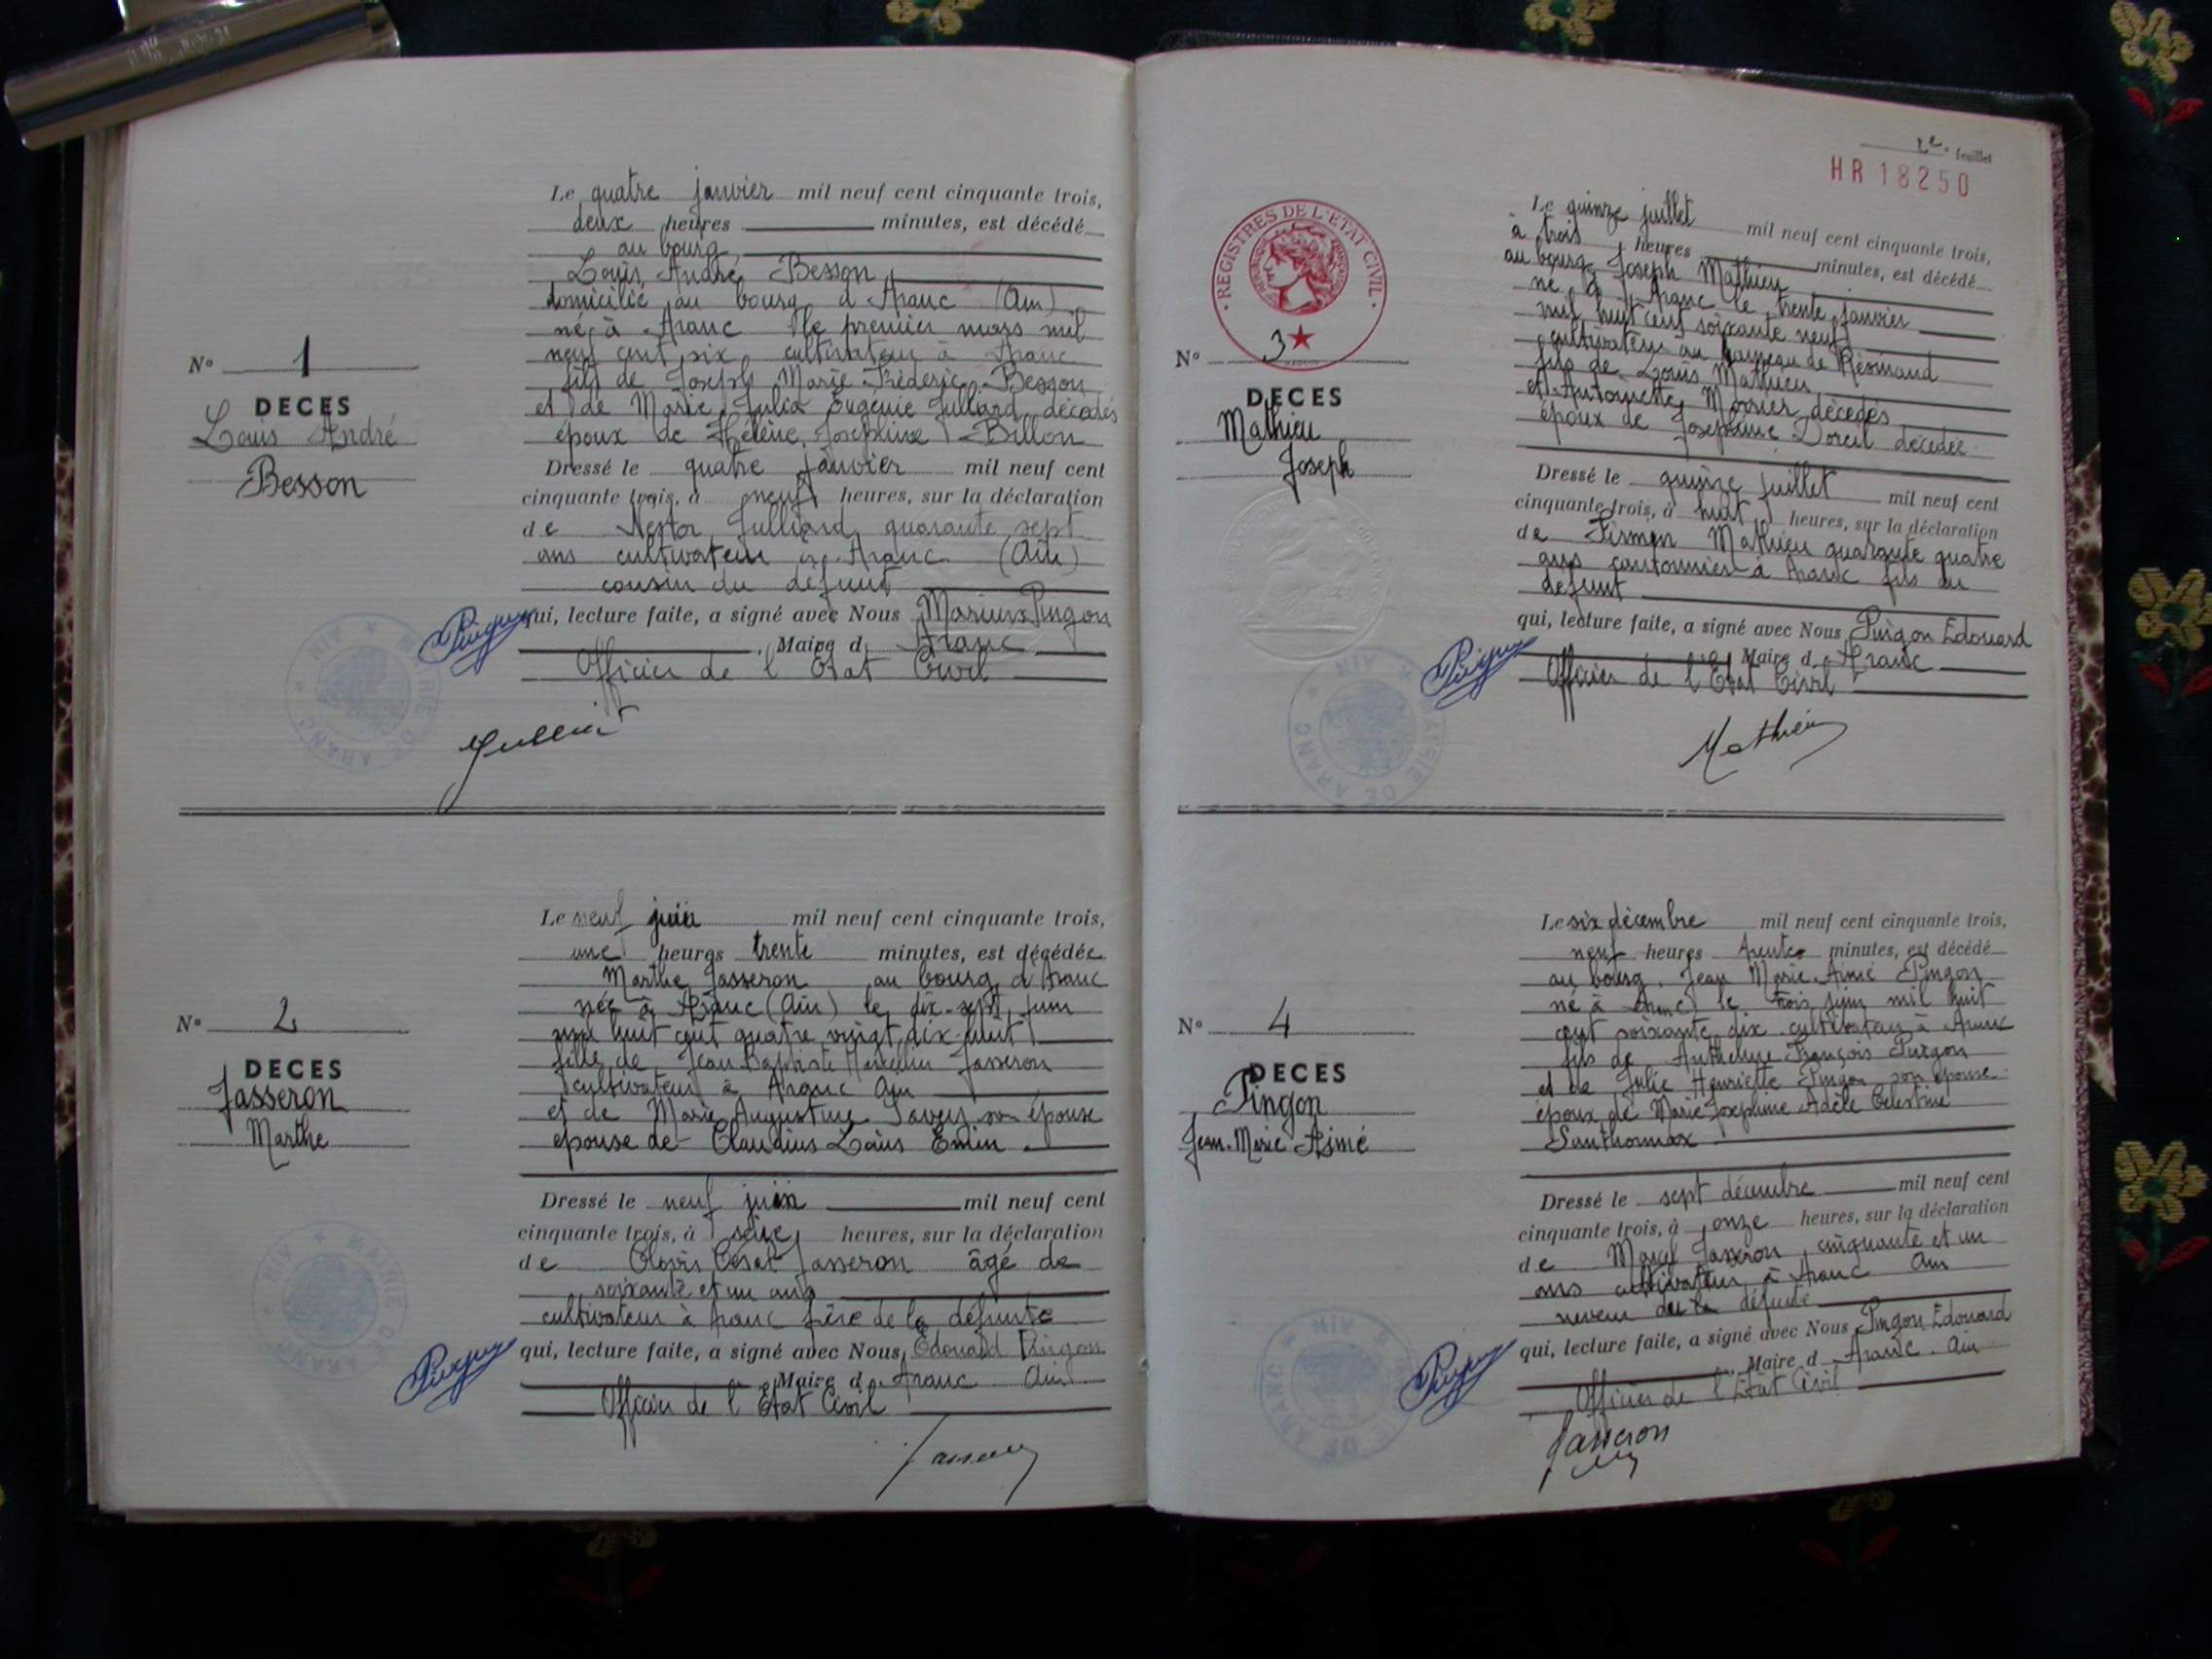 Le quatre janvier mil neuf cent cinquante trois,
deux heures minutes, est décédé
au bourg
Louis André Besson
domicilié au bourg d'Aranc (Ain)
né à Aranc le premier mars mil
neuf cent six cultivateur à Aranc
fils de Joseph Marie Fréderic Besson
et de Marie Julia Eugénie Julliard décédés
époux de Hélène Joséphine Billon
N° 1
DECES
Louis André
Besson
Dressé le quatre janvier mil neuf cent
cinquante trois, à neuf heures, sur la déclaration
de Nestor Julliard quarante sept
ans cultivateur à Aranc (Ain)
cousin du défunt
qui, lecture faite, a signé avec Nous Marius Pingon
Maire d Aranc
Officier de l'Etat Civil
MAIRIE DE ARANC AIN
Le neuf juin mil neuf cent cinquante trois,
une heures trente minutes, est décédée
Marthe Jasseron au bourg d'Aranc
née à Aranc (Ain) le dix-sept juin
mil huit cent quatre vingt dix huit
fille de Jean Baptiste Jasseron
cultivateur à Aranc Ain
et de Marie Augustine Savey son épouse
épouse de Claudius Louis Emin
N° 2
DECES
Jasseron
Marthe
Dressé le neuf juin mil neuf cent
cinquante trois, à seize heures, sur la déclaration
de Clovis César Jasseron âgé de
soixante et un ans
cultivateur à Aranc frère de la défunte
qui, lecture faite, a signé avec Nous, Edouard Pingon
Maire d Aranc Ain
Officier de l'Etat Civil
MAIRIE DE ARANC AIN
2e feuillet
HR 18250
REGISTRES DE L'ETAT CIVIL
Le quinze juillet mil neuf cent cinquante trois,
à trois heures minutes, est décédé
au bourg Joseph Mathieu
né à Aranc le trente janvier
mil huit cent soixante neuf
cultivateur au hameau de Résinand
fils de Louis Mathieu
et Antoinette décédés
époux de Joséphine décédée
N° 3
DECES
Mathieu
Joseph
Dressé le quinze juillet mil neuf cent
cinquante trois, à huit heures, sur la déclaration
de Firmin Mathieu quarante quatre
ans cantonnier à Aranc fils du
défunt
qui, lecture faite, a signé avec Nous Pingon Edouard
Maire d Aranc
Officier de l'Etat Civil
Mathieu
MAIRIE DE ARANC AIN
Le six décembre mil neuf cent cinquante trois,
neuf heures trente minutes, est décédé
au bourg Jean Marie Aimé Pingon
né à Aranc le trois juin mil huit
cent soixante dix cultivateur à Aranc
fils de Anthelme François Pingon
et de Julie Henriette Pingon son épouse
époux de Marie Joséphine Adèle Célestine
Santhonnax
N° 4
DECES
Pingon
Jean-Marie Aimé
Dressé le sept décembre mil neuf cent
cinquante trois, à onze heures, sur la déclaration
de Marcel Jasseron, cinquante et un
ans cultivateur à Aranc Ain
neveu défunte
qui, lecture faite, a signé avec Nous Pingon Edouard
Maire d Aranc Ain
Officier de l'Etat Civil
Jasseron
MAIRIE DE ARANC AIN